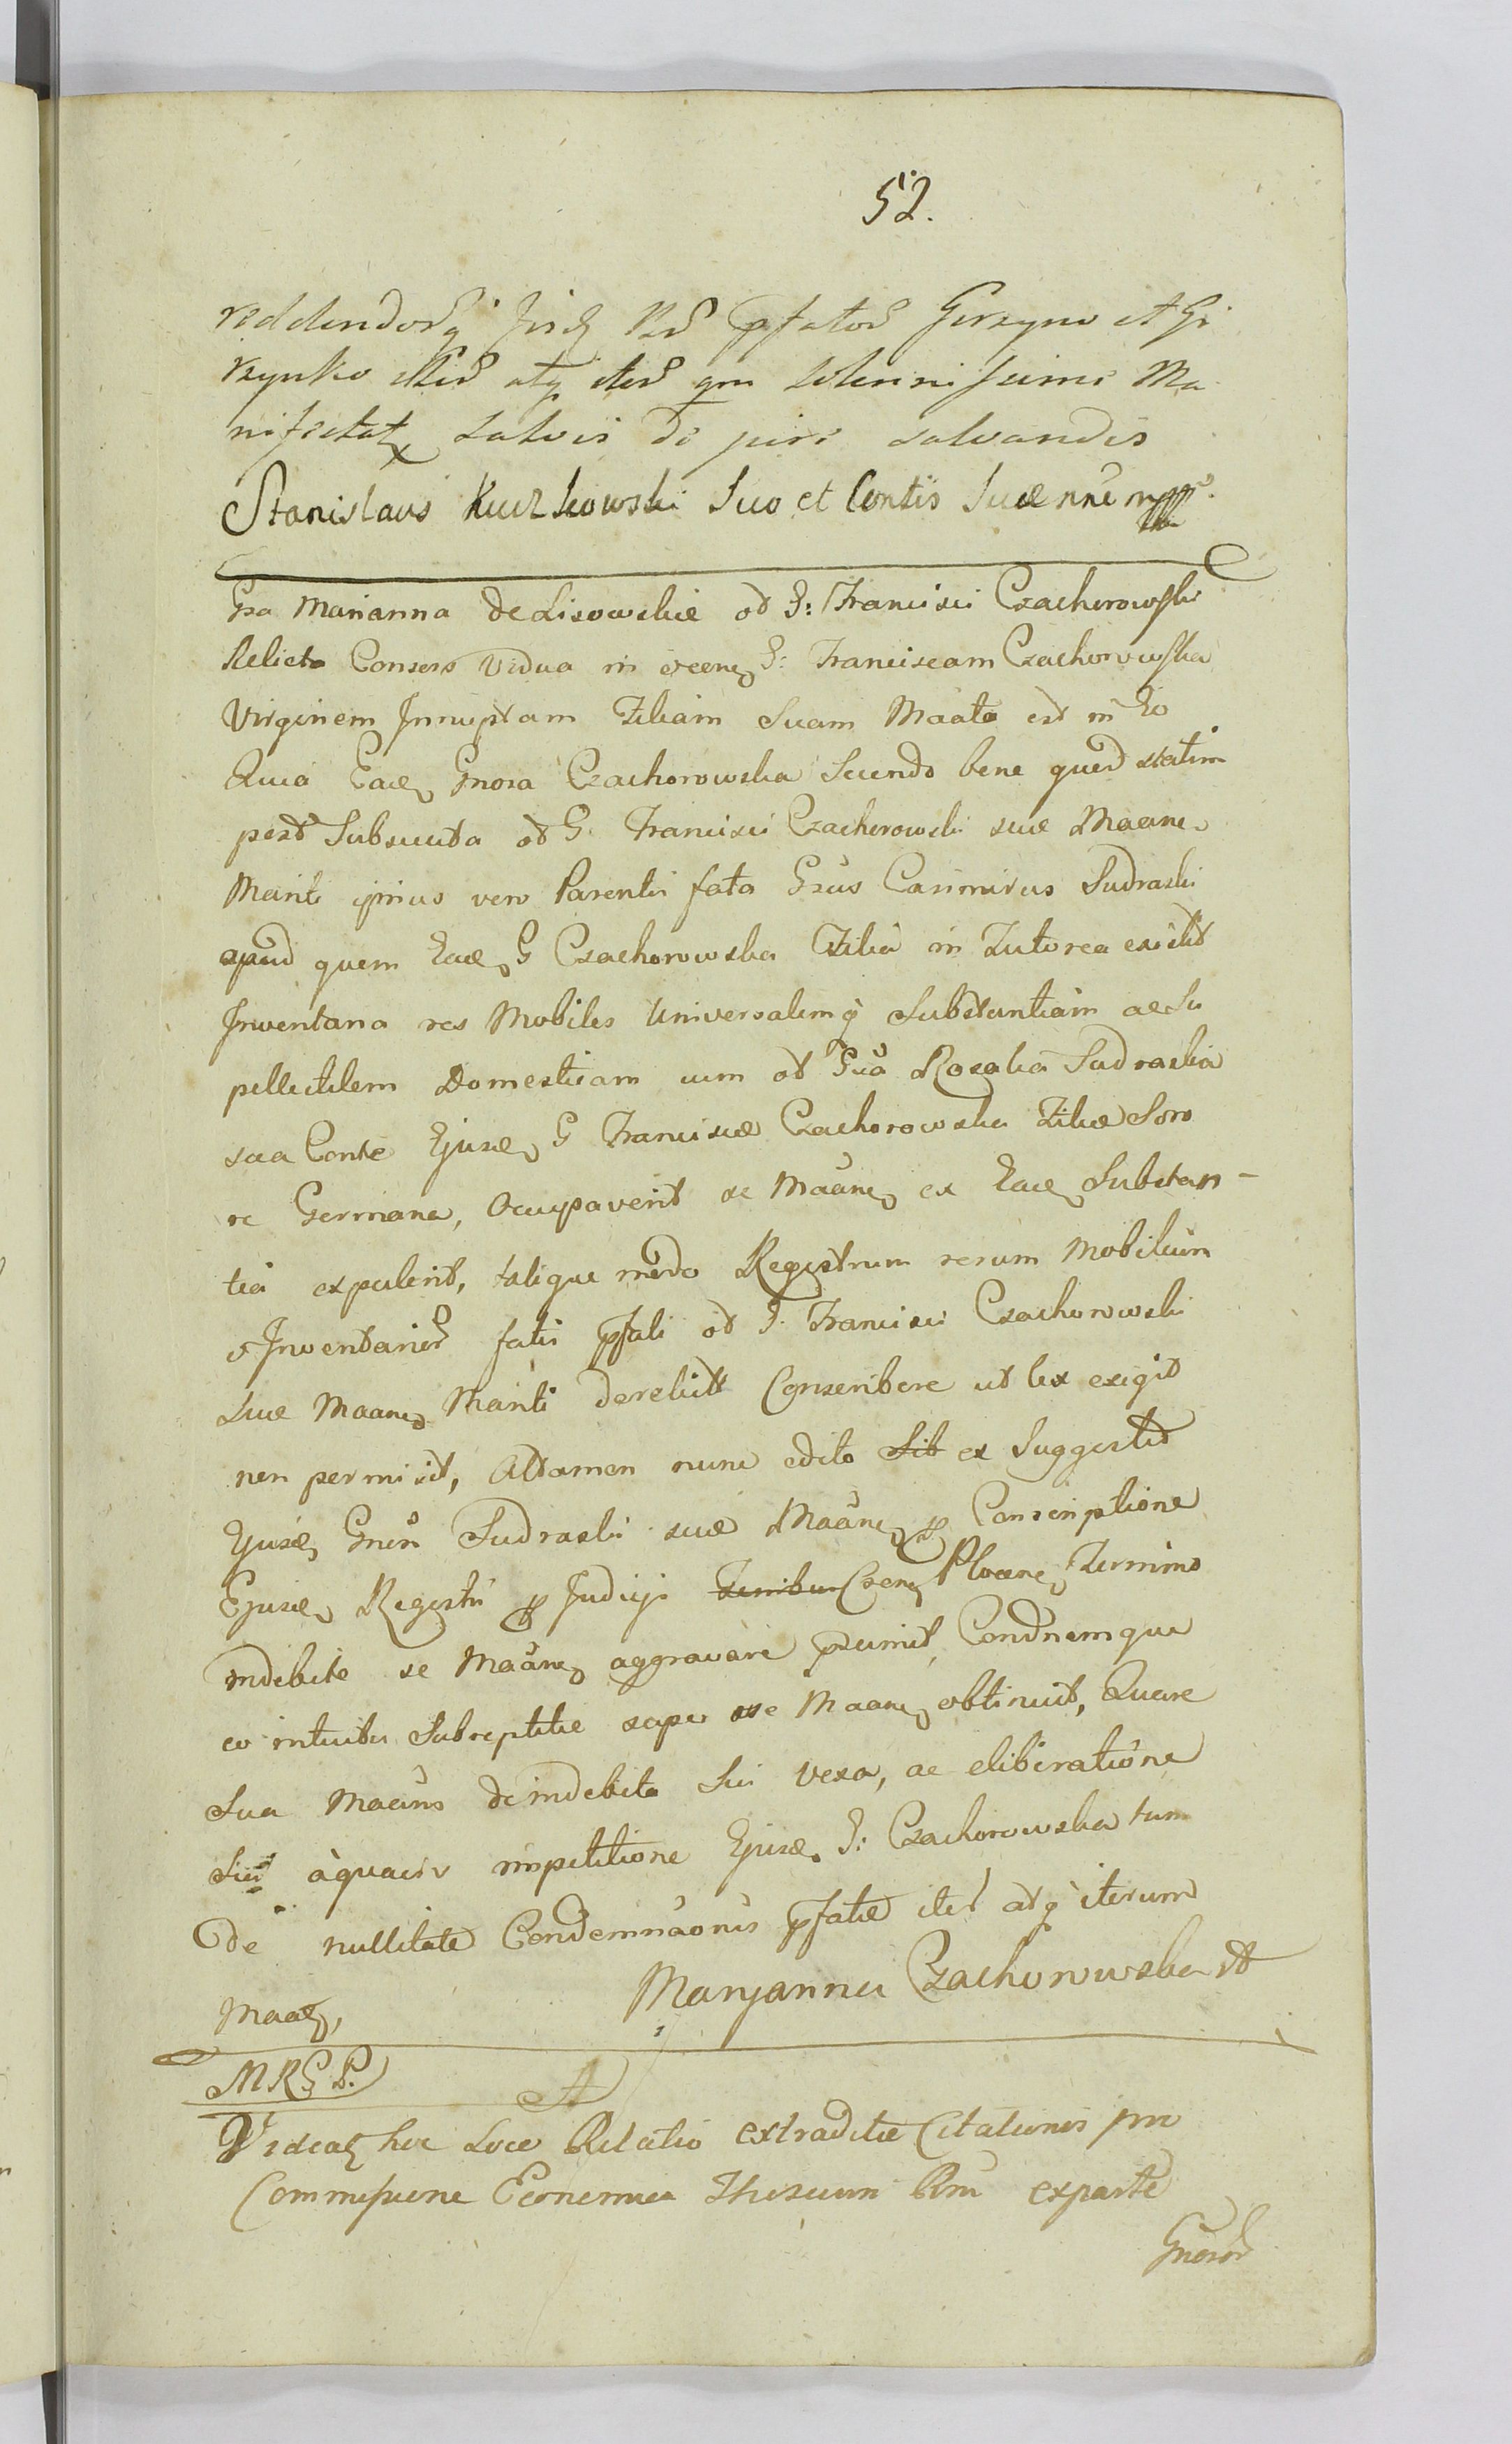 52.
reddendorq̃ pfator Gurzyno et Gu
rzynko iter atq iter qm solennissime Ma
nifestat salvis de jure salvandis
Stanislaus Kurzkowski Suo et Contis Suae nne mpp
Gsa Marianna de Lisowskie od G: Francisci Czachorowski
Relicta Consors Vidua in Franciscam Czachorowska
Virginem Innuptam Filiam Suam Maata est in Eo
Quia Eade Gnosa Czachorowska Sciendo bene quod statim
post Subsecuta od G. Francisci Czachorowski suae Maane
Mariti ipsius vero Parentis fata Gsus Casimirus Sudraski
apud quem Eade G Czachorowska Filia in Tutorea existit
Inventana res Mobiles Universalemq̃ Substantiam ac Su
pellectilem Domesticam cum od Gsa Rozalia Sudraska
sua Conte Ejusde G Franciscae Czachorowska Filiae Soro
re Germana, Occupaverit se Maane ex Eade Substan-
tia expulerit, talique modo Registrum rerum Mobilium
Inventarior fatis pfati od G. Francisci Czachorowski
Suae Maane Mariti derelict Conscribere ut lex exigit
non permisit, Attamen nunc edito Sit ex Suggestio
Ejusde Gnosi Sudraski suae Maane pro Conscriptione
Ejusde Regestri pro Judicys Czerne Plocene Termino
indebite se Maane aggravare psumit, Condnamque
eo intuitu Subreptitie super se Maane obtinuit, Quare
Sua Maans de indebita Sui Vexa, ac eliberatione
Sui àquavis impetitione Ejusde G: Czachorowska tum
de nullitate Condemnaonis pfatae iter atq̃ iterum
Maat, Maryanna Czachorowska
MRGP. A
Videat hic Loco Relatio extraditae Citationis pro
Commissione Economica Thesauri Rni exparte
Gnosor